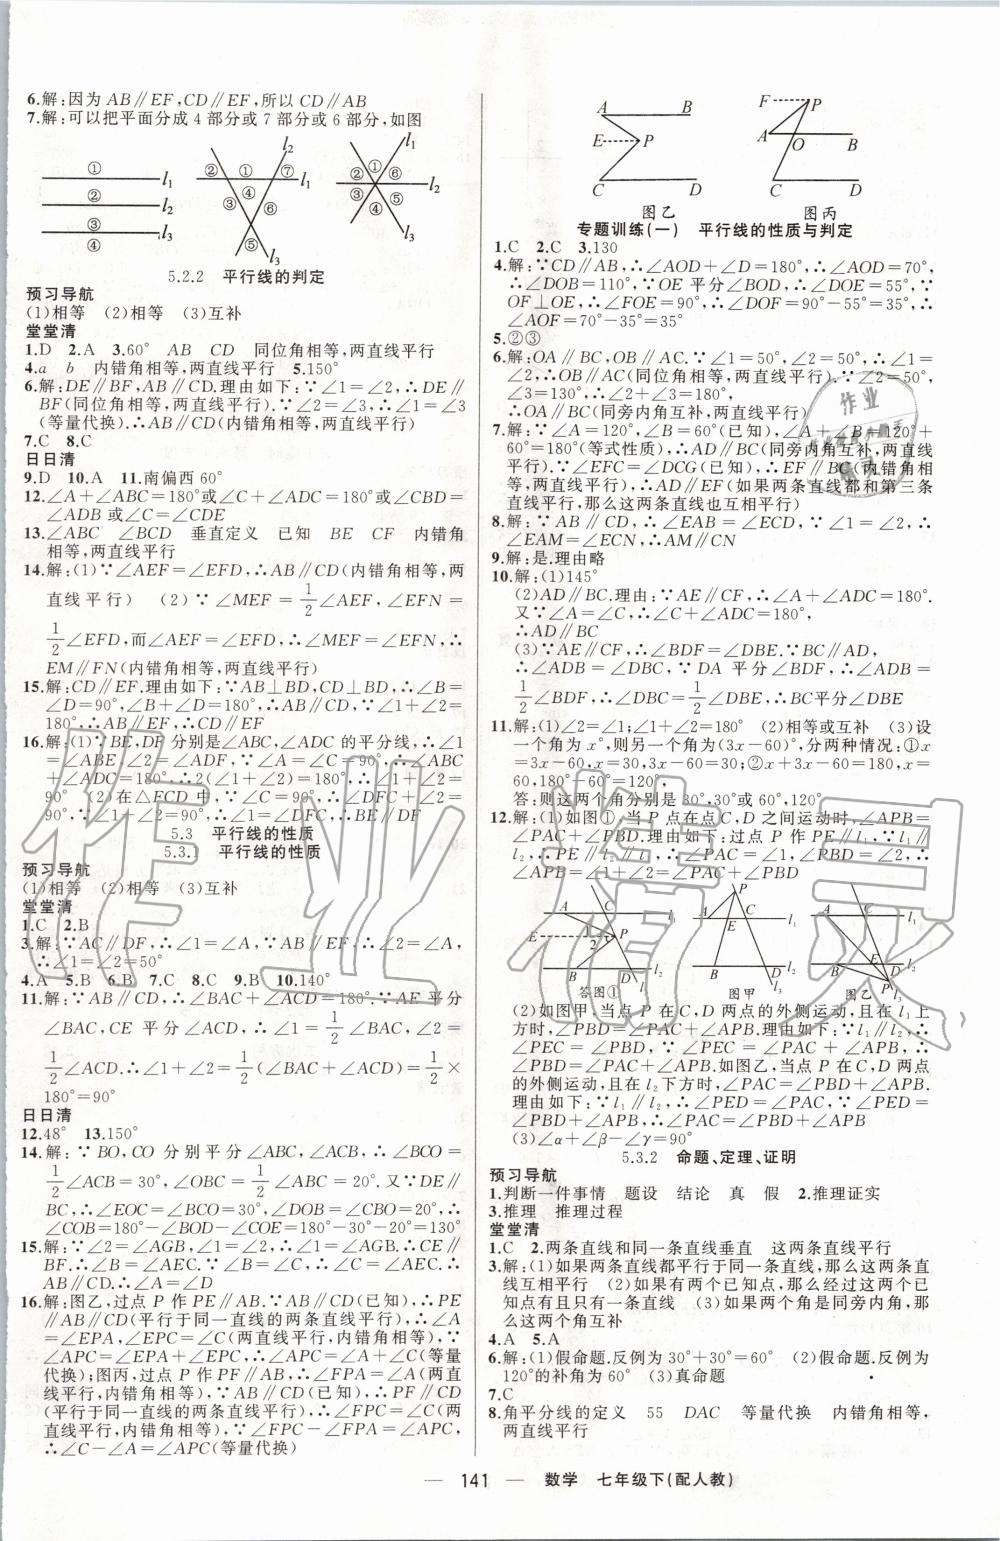 6.解:因为 AB∥EF,CD∥EF,所以 CD∥AB
7.解:可以把平面分成 4 部分或 7 部分或 6 部分,如图
① l₁
② l₂
③ l₃
④
l₂
② ① ⑦ l₁
③ ④ ⑥
⑤ l₃
l₁
② ① ⑥ l₂
③ ④ ⑤
l₃
5.2.2 平行线的判定
预习导航
(1)相等 (2)相等 (3)互补
堂堂清
1.D 2.A 3.60° AB CD 同位角相等,两直线平行
4.a b 内错角相等,两直线平行 5.150°
6.解:DE∥BF,AB∥CD.理由如下:∵∠1=∠2,∴DE∥
BF(同位角相等,两直线平行).∵∠2=∠3,∴∠1=∠3
(等量代换).∴AB∥CD(内错角相等,两直线平行)
7.C 8.C
日日清
9.D 10.A 11.南偏西 60°
12.∠A+∠ABC=180°或∠C+∠ADC=180°或∠CBD=
∠ADB 或∠C=∠CDE
13.∠ABC ∠BCD 垂直定义 已知 BE CF 内错角
相等,两直线平行
14.解:(1)∵∠AEF=∠EFD,∴AB∥CD(内错角相等,两
直线平行) (2)∵∠MEF=1/2∠AEF,∠EFN=
1/2∠EFD,而∠AEF=∠EFD,∴∠MEF=∠EFN,∴
EM∥FN(内错角相等,两直线平行)
15.解:CD∥EF.理由如下:∵AB⊥BD,CD⊥BD,∴∠B=
∠D=90°,∠B+∠D=180°,∴AB∥CD,∵∠1+∠2=
180°,∴AB∥EF,∴CD∥EF
16.解:(1)∵BE,DF 分别是∠ABC,∠ADC 的平分线,∴∠1
=∠ABE,∠2=∠ADF,∵∠A=∠C=90°,∴∠ABC
+∠ADC=180°,∴2(∠1+∠2)=180°,∴∠1+∠2=
90° (2)在△FCD 中,∵∠C=90°,∴∠DFC+∠2=
90°,∵∠1+∠2=90°,∴∠1=∠DFC,∴BE∥DF
5.3 平行线的性质
5.3.1 平行线的性质
预习导航
(1)相等 (2)相等 (3)互补
堂堂清
1.C 2.B
3.解:∵AC∥DF,∴∠1=∠A,∵AB∥EF,∴∠2=∠A,
∴∠1=∠2=50°
4.A 5.B 6.B 7.C 8.C 9.B 10.140°
11.解:∵AB∥CD,∴∠BAC+∠ACD=180°.∵AE 平分
∠BAC,CE 平分∠ACD,∴∠1=1/2∠BAC,∠2=
1/2∠ACD.∴∠1+∠2=1/2(∠BAC+∠ACD)=1/2×
180°=90°
日日清
12.48° 13.150°
14.解:∵BO,CO 分别平分∠ABC,∠ACB,∴∠BCO=
1/2∠ACB=30°,∠OBC=1/2∠ABC=20°.又∵DE∥
BC,∴∠EOC=∠BCO=30°,∠DOB=∠CBO=20°,∴
∠COB=180°-∠BOD-∠COE=180°-30°-20°=130°
15.解:∵∠2=∠AGB,∠1=∠2,∴∠1=∠AGB.∴CE∥
BF.∴∠B=∠AEC.∵∠B=∠C,∴∠C=∠AEC.∴
AB∥CD.∴∠A=∠D
16.解:图乙,过点 P 作 PE∥AB.∵AB∥CD(已知),∴PE
∥AB∥CD(平行于同一直线的两条直线平行),∴∠A
=∠EPA,∠EPC=∠C(两直线平行,内错角相等),∵
∠APC=∠EPA+∠EPC,∴∠APC=∠A+∠C(等量
代换);图丙,过点 P 作 PF∥AB,∴∠FPA=∠A(两直
线平行,内错角相等),∵AB∥CD(已知),∴PF∥CD
(平行于同一直线的两条直线平行),∴∠FPC=∠C(两
直线平行,内错角相等),∵∠FPC-∠FPA=∠APC,
∴∠C-∠A=∠APC(等量代换)
A B
E P
C D
图乙
F P
A O B
C D
图丙
专题训练(一) 平行线的性质与判定
1.C 2.C 3.130
4.解:∵CD∥AB,∴∠AOD+∠D=180°,∴∠AOD=70°,
∴∠DOB=110°,∵OE 平分∠BOD,∴∠DOE=55°,∵
OF⊥OE,∴∠FOE=90°,∴∠DOF=90°-55°=35°,∴
∠AOF=70°-35°=35°
5.②③
6.解:OA∥BC,OB∥AC.∵∠1=50°,∠2=50°,∴∠1=
∠2,∴OB∥AC(同位角相等,两直线平行),∵∠2=50°,
∠3=130°,∴∠2+∠3=180°,
∴OA∥BC(同旁内角互补,两直线平行)
7.解:∵∠A=120°,∠B=60°(已知),∠A+∠B=120°+
60°=180°(等式性质),∴AD∥BC(同旁内角互补,两直线
平行).∵∠EFC=∠DCG(已知),∴EF∥BC(内错角相
等,两直线平行),∴AD∥EF(如果两条直线都和第三条
直线平行,那么这两条直线也互相平行)
8.解:∵AB∥CD,∴∠EAB=∠ECD,∵∠1=∠2,∴
∠EAM=∠ECN,∴AM∥CN
9.解:是.理由略
10.解:(1)145°
(2)AD∥BC.理由:∵AE∥CF,∴∠A+∠ADC=180°.
又∵∠A=∠C,∴∠C+∠ADC=180°,
∴AD∥BC
(3)∵AE∥CF,∴∠BDF=∠DBE.∵BC∥AD,
∴∠ADB=∠DBC,∵DA 平分∠BDF,∴∠ADB=
1/2∠BDF,∴∠DBC=1/2∠DBE,∴BC平分∠DBE
11.解:(1)∠2=∠1;∠1+∠2=180° (2)相等或互补 (3)设
一个角为 x°,则另一个角为(3x-60)°,分两种情况:①x
=3x-60,x=30,3x-60=30;②x+3x-60=180,x=
60,180°-60°=120°
答:则这两个角分别是 30°,30°或 60°,120°
12.解:(1)如图①,当 P 点在点 C,D 之间运动时,∠APB=
∠PAC+∠PBD.理由如下:过点 P 作 PE∥l₁,∵l₁∥
l₂,∴PE∥l₂∥l₁,∴∠PAC=∠1,∠PBD=∠2,∴
∠APB=∠1+∠2=∠PAC+∠PBD
A C l₁
E 1 2 P
B D l₂
l₃
答图①
P
A C l₁
E
B D l₂
l₃
图甲
A C l₁
E
B D l₂
P l₃
图乙
(2)如图甲,当点 P 在 C,D 两点的外侧运动,且在 l₁ 上
方时,∠PBD=∠PAC+∠APB.理由如下:∵l₁∥l₂,∴
∠PEC=∠PBD,∵∠PEC=∠PAC+∠APB,∴
∠PBD=∠PAC+∠APB.如图乙,当点 P 在 C,D 两点
的外侧运动,且在 l₂ 下方时,∠PAC=∠PBD+∠APB.
理由如下:∵l₁∥l₂,∴∠PED=∠PAC,∵∠PED=
∠PBD+∠APB,∴∠PAC=∠PBD+∠APB
(3)∠α+∠β-∠γ=90°
5.3.2 命题、定理、证明
预习导航
1.判断一件事情 题设 结论 真 假 2.推理证实
3.推理 推理过程
堂堂清
1.C 2.两条直线和同一条直线垂直 这两条直线平行
3.解:(1)如果两条直线都平行于同一条直线,那么这两条直
线互相平行 (2)如果有两个已知点,那么经过这两个已
知点有且只有一条直线 (3)如果两个角是同旁内角,那
么这两个角互补
4.A 5.A
6.解:(1)假命题.反例为 30°+30°=60° (2)假命题.反例为
120°的补角为 60° (3)真命题
7.C
8.角平分线的定义 55 DAC 等量代换 内错角相等,
两直线平行
— 141 — 数学 七年级下(配人教)
作业精灵
作业